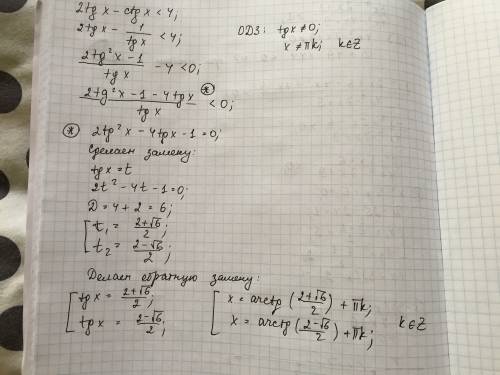 2tg x - ctg x < 4;
ОДЗ: tg x ≠ 0;
2tg x - 1/tg x < 4;
x ≠ πk; k∈Z
(2tg²x - 1)/tg x - 4 < 0;
(2tg²x - 1 - 4tg x)/tg x < 0; (*)
(*) 2tg²x - 4tg x - 1 = 0;
Сделаем замену:
tg x = t
2t² - 4t - 1 = 0;
D = 4 + 2 = 6;
[ t₁ = (2+√6)/2;
t₂ = (2-√6)/2;
Делаем обратную замену:
[ tg x = (2+√6)/2; [ x = arctg((2+√6)/2) + πk;
tg x = (2-√6)/2; x = arctg((2-√6)/2) + πk; k∈Z